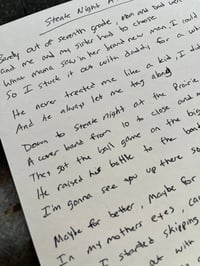 Steak Night A
Barely out of seventh grade, Mom and Dad were
and me and my sister had to choose
What mama saw in her brand new man, I could
So I stuck it out with daddy for a wh
He never treated me like a kid, I did
And he always let me tag along
Down to Steak Night at the Prairie
A cover band from 10 to close and
They got the ball game on the big
He raised his bottle to the band
I'm gonna see you up there so
Maybe for better, Maybe for
In my mothers eyes, ca
I started skipping
out with